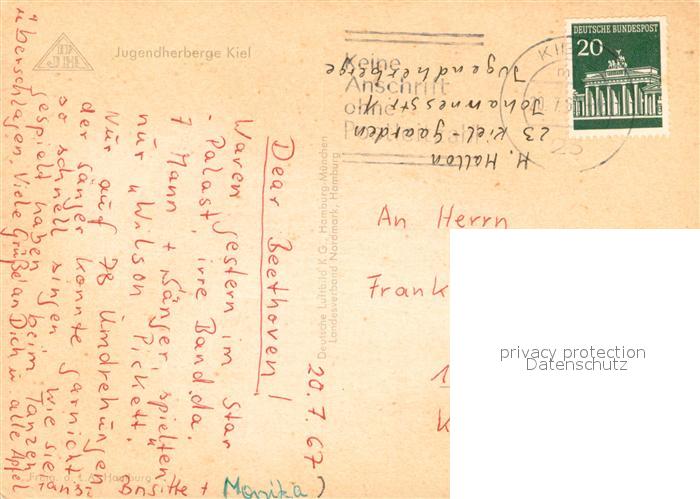 Jugendherberge Kiel
Keine
Anschrift
ohne
DEUTSCHE BUNDESPOST
20
KIEL
23
H. Halton
23 Kiel-Gaarden
Johannesstr. 1
Jugendherberge
An Herrn
Frank
1
K
20.7.67
Dear Beethoven!
Waren gestern im Star
- Palast, irre Band da.
7 Mann + Sänger, spielten
nur "Wilson Pickett".
Nur auf 78 Umdrehungen
der Sänger konnte garnicht
so schnell singen wie sie
gespielt haben, beim Tanzen
überschlagen. Viele Grüße an Dich u. alle Apfel
Brigitte +
Monika
Deutsche Luftbild K.G., Hamburg-München
Landesverband Nordmark, Hamburg
privacy protection
Datenschutz